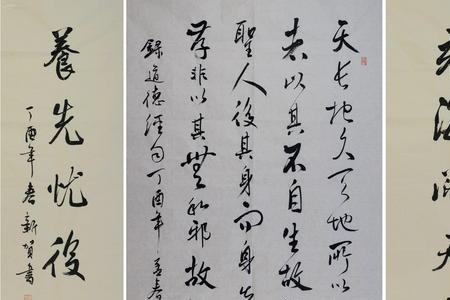 天长地久天地所以
者以其不自生故
聖人後其身而身
存非以其無私邪故
錄道德經句丁酉年
養先忧後
丁酉年春新賀書